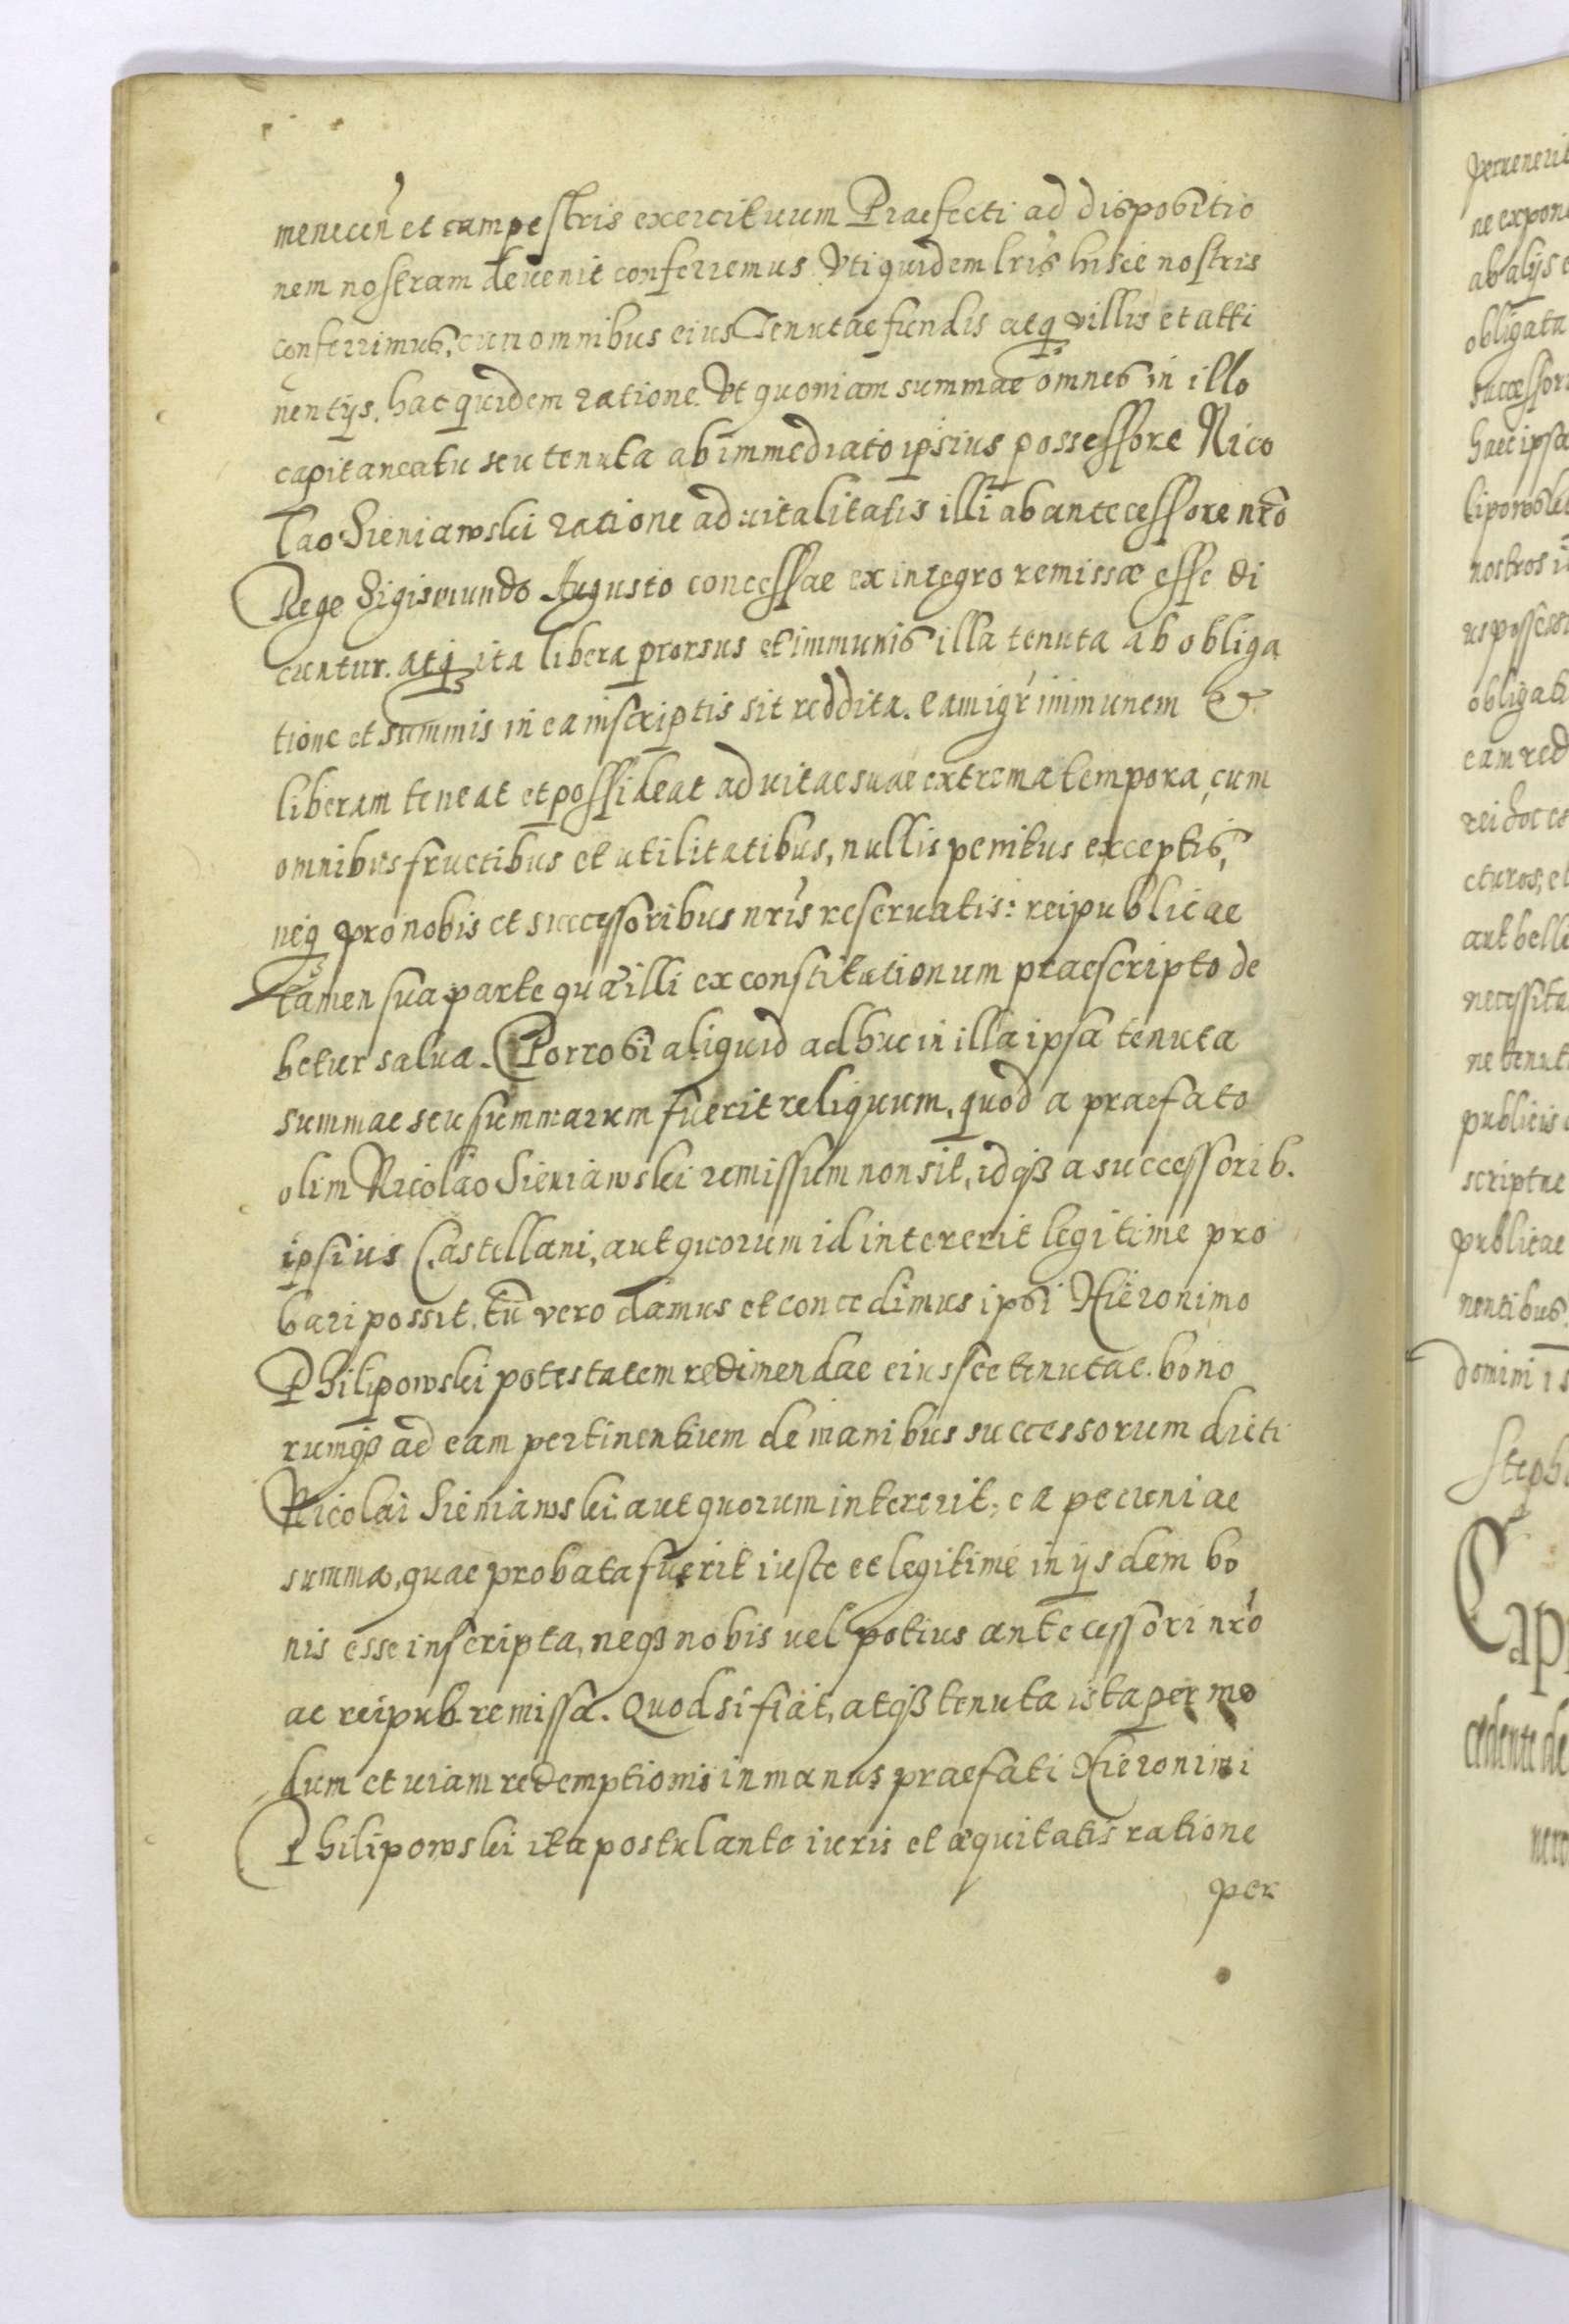 menecen̄ et campestris exercituum Praefecti ad dispositio
nem nostram deuenit conferremus Vti quidem lr̄is hisce nostris
conferrimus, cum omnibus eius Tenutae fundis atq villis et atti
nentijs. hac quidem ratione Vt quoniam summae omnes in illo
capitaneatu seu tenuta ab immediato ipsius possessore Nico
lao Sieniawski ratione aduitalitatis illi ab antecessore nr̄o
Rege Sigismundo Augusto concessae ex integro remissae esse di
cuntur. atq ita libera prorsus et immunis illa tenuta ab obliga
tione et summis in ea inscriptis sit reddita. eam igr̄ immunem &
liberam teneat et possideat ad uitae suae extrema tempora, cum
omnibus fructibus et utilitatibus, nullis penitus exceptis,
neq pro nobis et successoribus nr̄is reseruatis: reipublicae
tamen sua parte quā illi ex constitutionum praescripto de
betur salua. Porro si aliquid adhuc in illa ipsa tenuta
summae seu summarum fuerit reliquum, quod a praefato
olim Nicolao Sieniawski remissum non sit, idqȝ a successorib.
ipsius Castellani, aut quorum id intererit legitime pro
bari possit. tū vero damus et concedimus ipsi Hieronimo
Philipowski potestatem redimendae eiusce tenutae. bono
rumqȝ ad eam pertinentium de manibus successorum dicti
Nicolai Sieniawski aut quorum intererit, ea pecuniae
summa, quae probata fuerit iuste et legitime in ijsdem bo
nis esse inscripta, neqȝ nobis uel potius antecessori nr̄o
ac reipub. remissa. Quod si fiat, atqȝ tenuta ista per mo
dum et uiam redemptionis in manus praefati Hieronimi
Philipowski ita postulante iuris et aequitatis ratione
per
peruenerit
ne expon
ab alijs
obligata
successor
haec ipsa
lipowski
nostros
us possess
obligati
eam red
rei hoc
cturos, e
aut bell
necessita
ne tenut
publicis
scriptae
publicae
nentibus
domini
Steph
Cap
cedente de